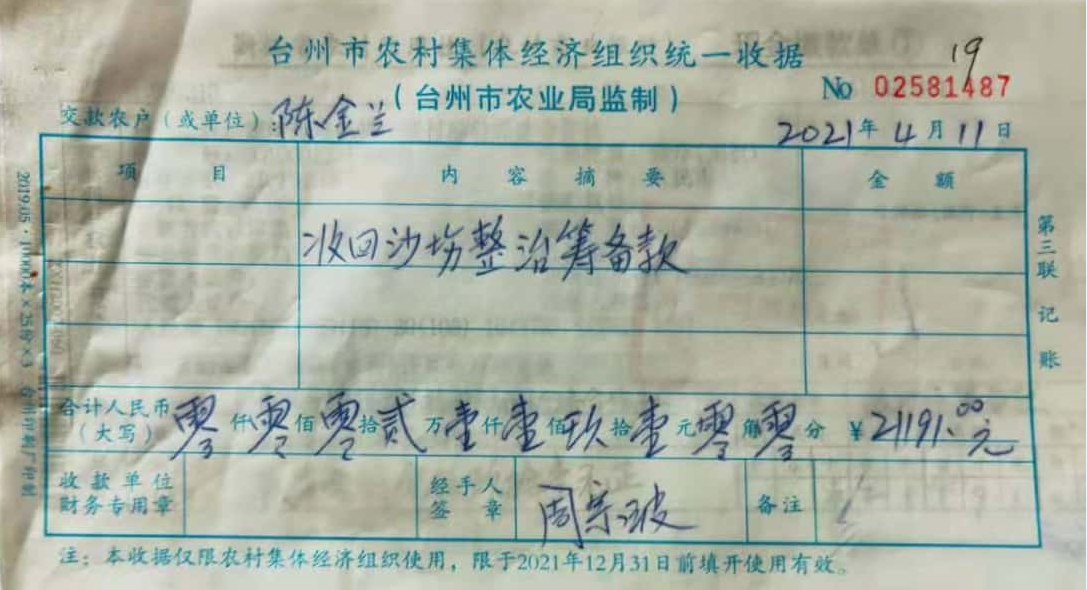 台州市农村集体经济组织统一收据
19
(台州市农业局监制)
No 02581487
交款农户(或单位):陈金兰
2021年4月11日
项 目 内容摘要 金额
收回沙场整治筹备款
合计人民币(大写) 零仟零佰零拾贰万壹仟壹佰玖拾壹元零角零分 ¥21191.00元
收款单位财务专用章
经手人签章 周宗波
备注
注:本收据仅限农村集体经济组织使用,限于2021年12月31日前填开使用有效。
第三联 记账
2019.05·10000本×25份×3